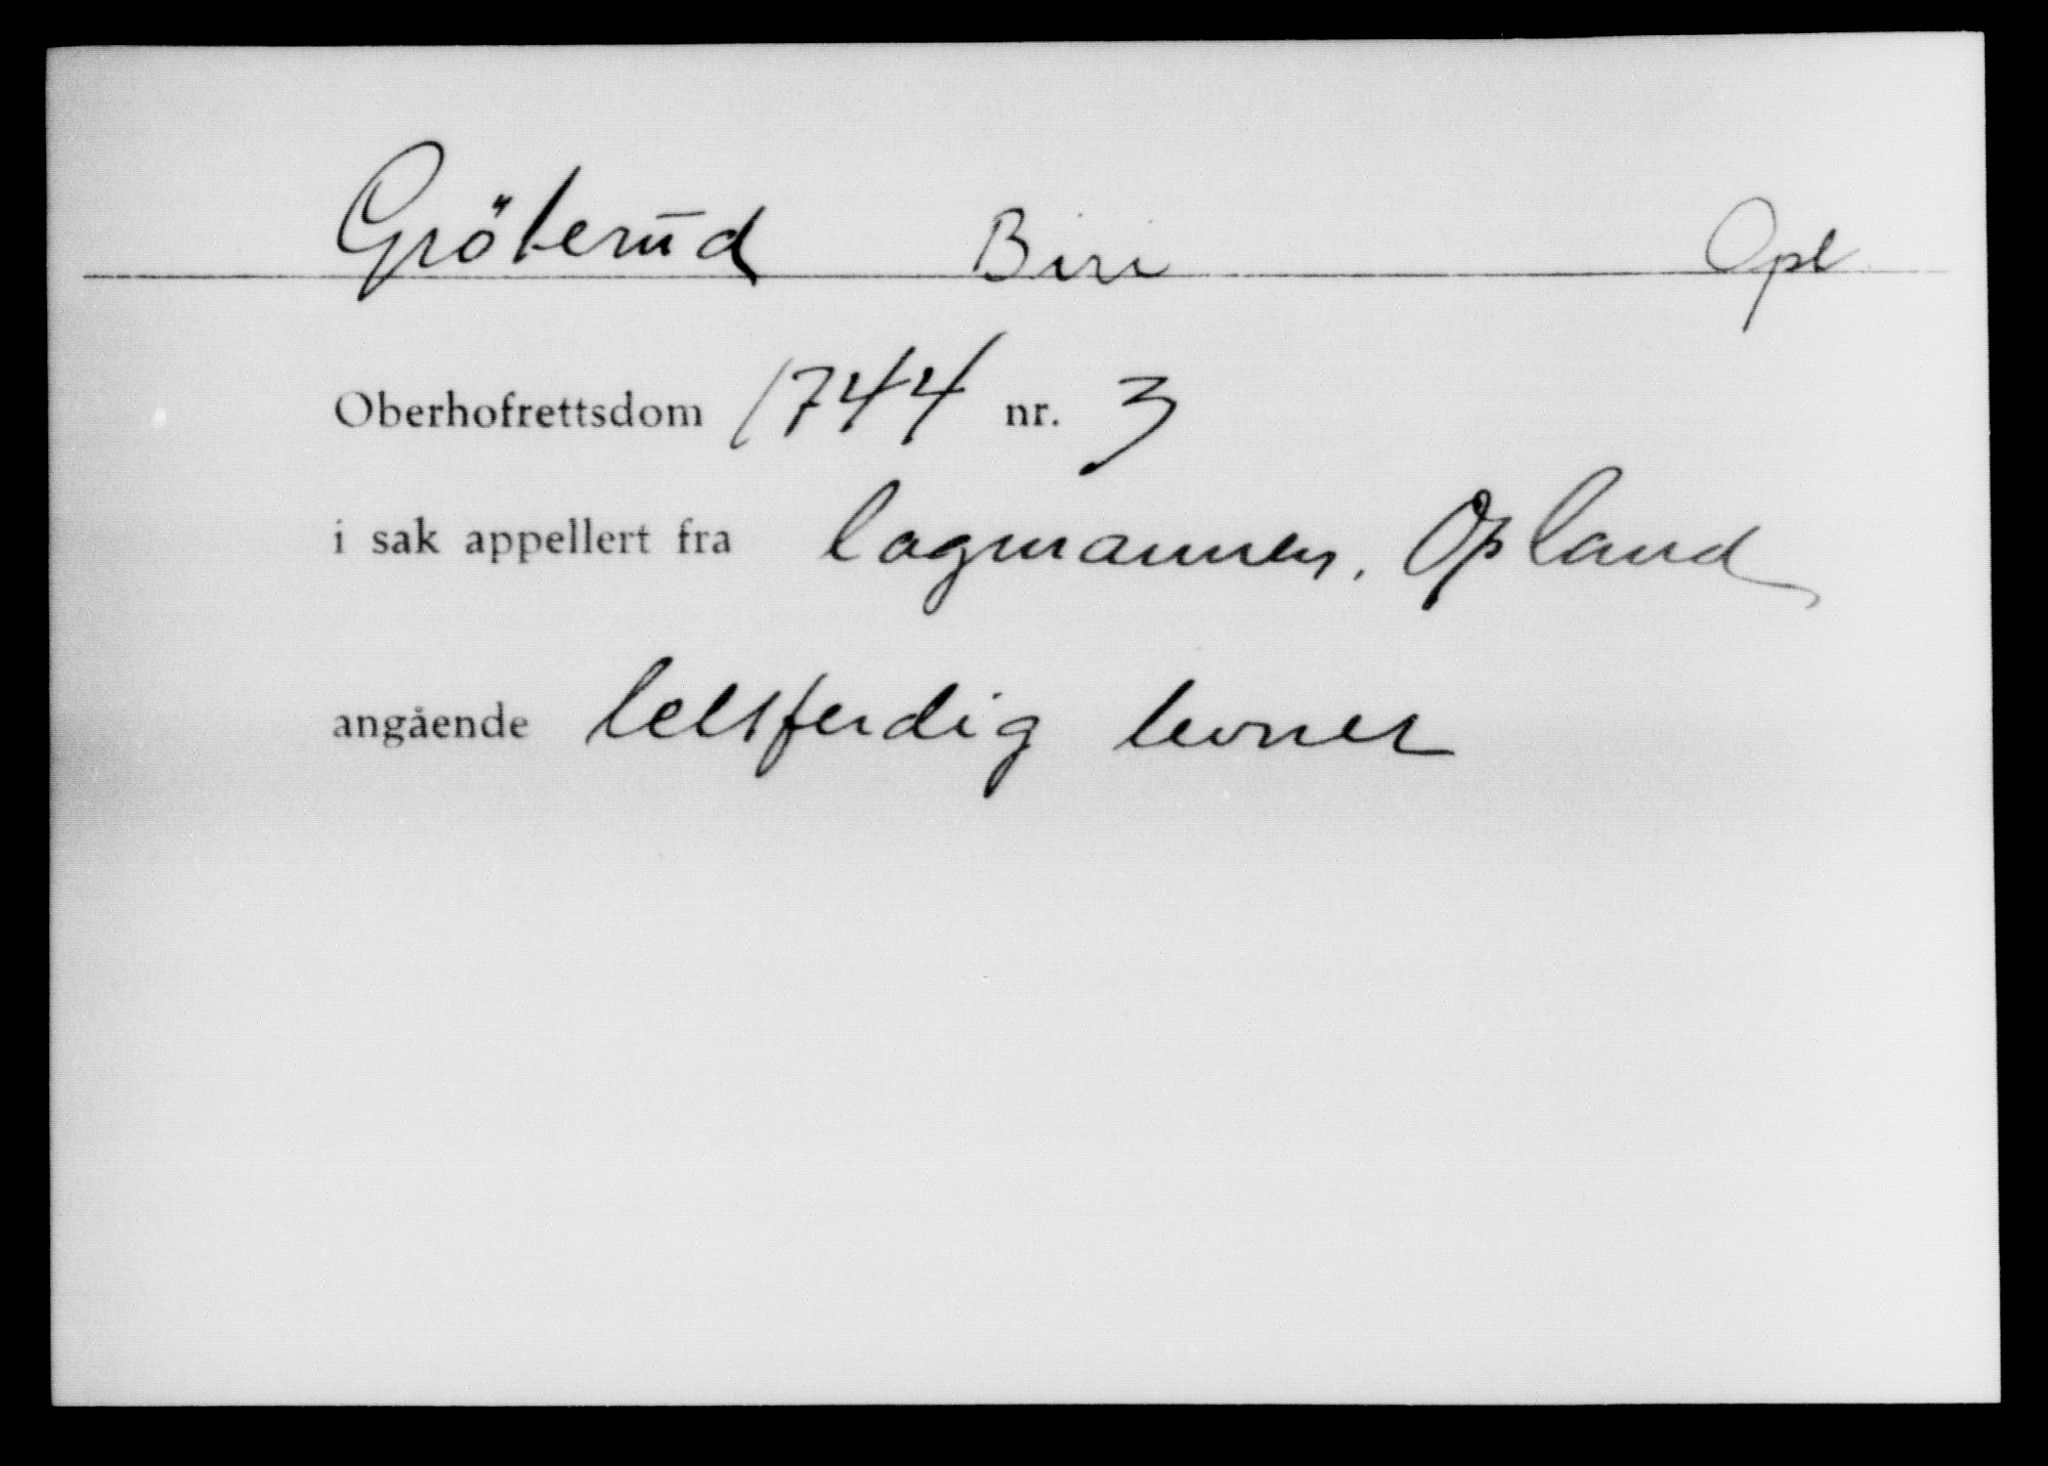 Gröterud Biri Opl
Oberhofrettsdom 1744 nr. 3
i sak appellert fra lagmannen, Opland
angående letsferdig levnet